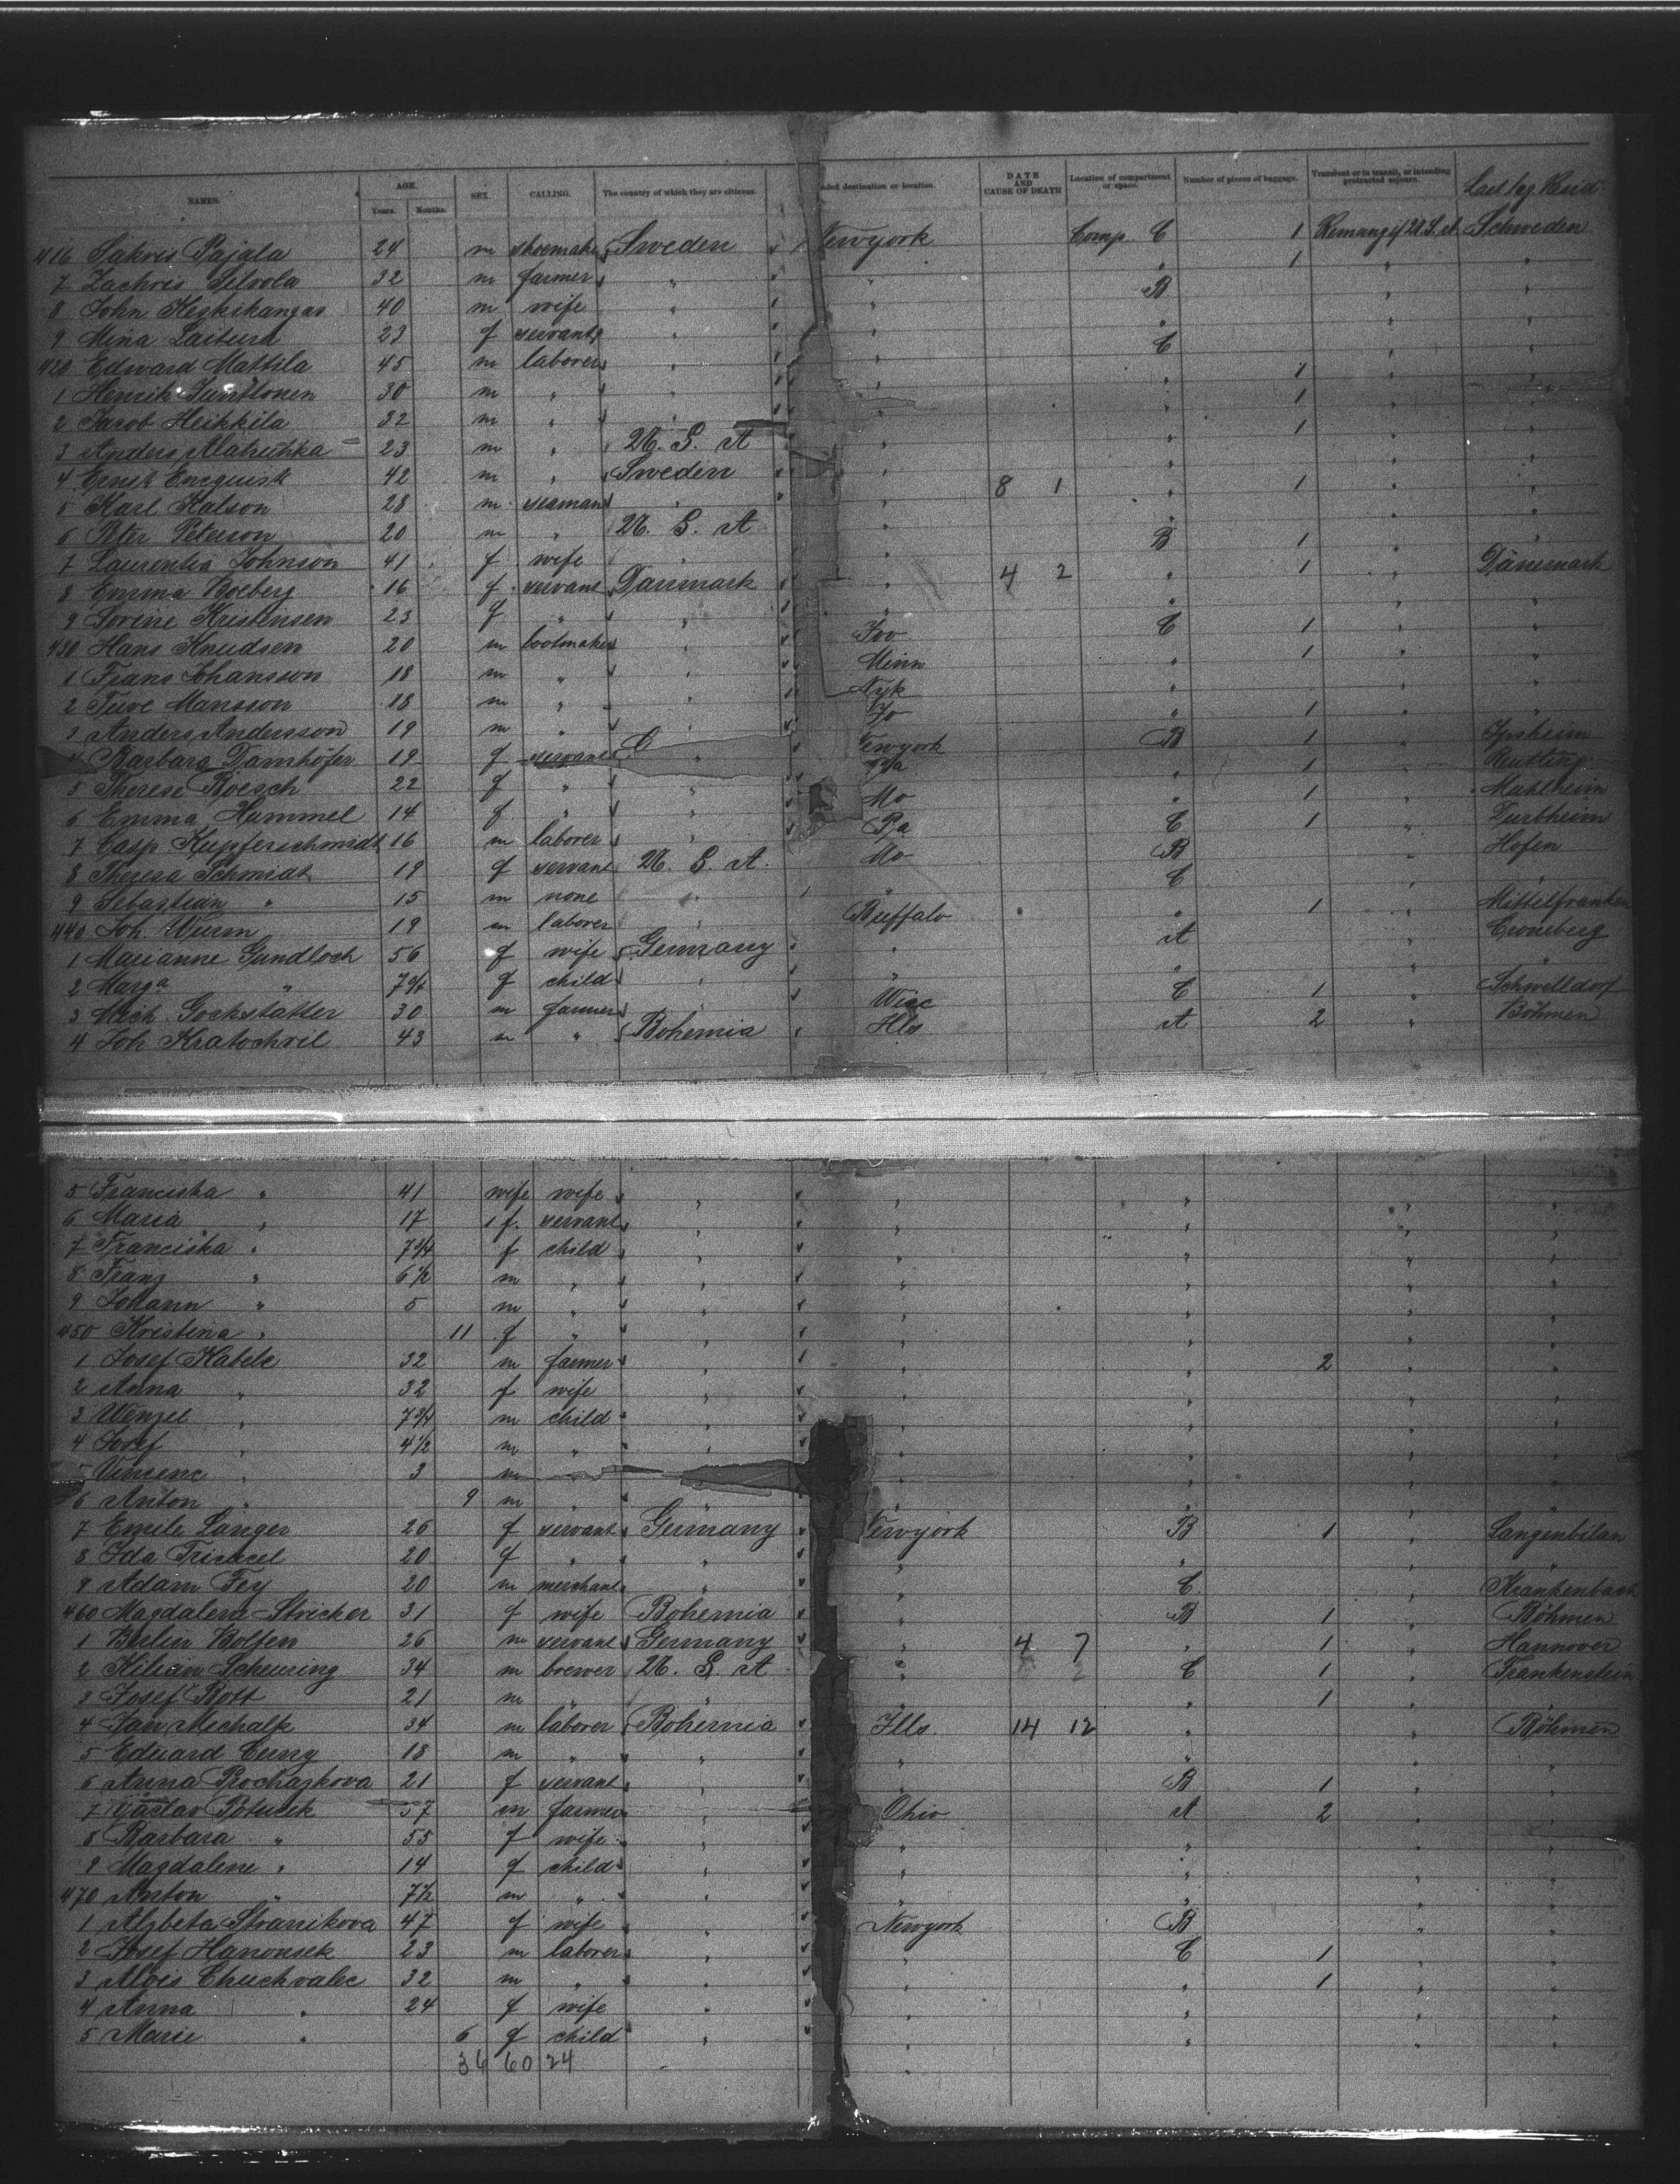 NAMES. AGE. Years. Months. SEX. CALLING. The country of which they are citizens. ded destination or location. DATE AND CAUSE OF DEATH Location of compartment or space. Number of pieces of baggage. Transient or in transit, or intending protracted sojourn.
416 Sakris Pajala 24 m shoemaker Sweden Newyork Comp. C 1 Schweden
7 Zachris Silvola 32 m farmer " " " 1 " "
8 John Keskikangas 40 m wife " " B " "
9 Mina Laitura 23 f servant " " " " "
420 Edward Mattila 45 m laborer " " C " "
1 Henrik 30 m " " " " 1 " "
2 Jacob Heikkila 32 m " " " " 1 " "
3 Anders 23 m " U. S. A " " 1 " "
4 Ernst Enequist 42 m " Sweden " " " "
5 Karl Kalson 28 m seaman " " 8 1 " 1 " "
6 Peter Peterson 20 m " U. S. A " " " "
7 Laurentia Johnson 41 f wife " " B 1 " "
8 Emma Boeberg 16 f servant Danmark " 4 2 " 1 " Dänemark
9 Sorine Kristinsen 23 f " " " " " "
430 Hans Knudsen 20 m bootmaker " Iov C 1 " "
1 Frans Johansson 18 m " " Minn " 1 " "
2 Tuve Mansson 18 m " " Nyk " " "
3 Anders Andersson 19 m " " Io " 1 " "
4 Barbara Damhöfer 19 f servant G " Newyork B 1 " Ipsheim
5 Therese Roesch 22 f " " Pa " 1 " Reutting
6 Emma Hummel 14 f " " Mo " 1 " Muhlheim
7 Casp Kupferschmidt 16 m laborer " Pa C 1 " Durbheim
8 Theresa Schmidt 19 f servant U. S. A. Mo B " Hofen
9 Sebastian " 15 m none " " C " "
440 Joh. Wurm 19 m laborer " Buffalo " 1 " Mittelfranken
1 Marianne Gundloch 56 f wife Germany " A " Croneberg
2 Marga " 7 3/4 f child " " " " "
3 Mich. Gockstatter 30 m farmer " Wisc C 1 " Schwelldorf
4 Joh Kratochvil 43 m " Bohemia Ills A 2 " Böhmen
5 Franciska " 41 wife wife " " " " "
6 Maria " 17 f. servant " " " " "
7 Franciska " 7 3/4 f child " " " " "
8 Franz " 6 1/2 m " " " " " "
9 Johann " 5 m " " " " " "
450 Kristina " 11 f " " " " " "
1 Josef Kabele 32 m farmer " " " 2 " "
2 Anna " 32 f wife " " " " "
3 Wenzel " 7 3/4 m child " " " " "
4 Josef " 4 1/2 m " " " " " "
5 Vincenc " 3 m " " " " "
6 Anton " 9 m " " " " " "
7 Emile Langer 26 f servant Germany Newyork B 1 " Langenbilan
8 Ida 20 f " " " " " "
9 Adam Fey 20 m merchant " " C " Krankenbach
460 Magdalena Stricker 31 f wife Bohemia " B 1 " Böhmen
1 Bolten 26 m servant Germany " 4 7 " 1 " Hannover
2 Kilian Scheuring 34 m brewer U. S. A " C 1 " Frankenstein
3 Josef Bott 21 m " " " " 1 "
4 Jan Michalk 34 m laborer Bohemia Ills 14 12 " " Böhmen
5 Eduard Cerny 18 m " " " " " "
6 Anna Prochazkova 21 f servant " " B 1 " "
7 Vaclav Potucek 57 m farmer " Ohio A 2 " "
8 Barbara " 55 f wife " " " " "
9 Magdalene " 14 f child " " " " "
470 Anton " 7 1/2 m " " " " " "
1 Alzbeta Stranikova 47 f wife " Newyork B " "
2 Josef Hanousek 23 m laborer " " C 1 " "
3 Alois Chuchvalec 32 m " " " " 1 " "
4 Anna " 24 f wife " " " " "
5 Marie " 6 f child " " " " "
36 60 24